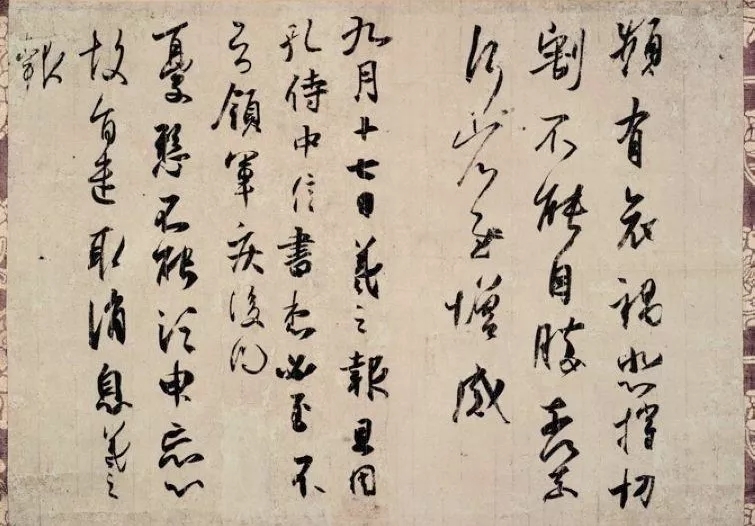 頻有哀禍悲摧切
割不能自勝奈〻
何〻省慰增感
九月十七日羲之報且因
孔侍中信書想必至不
知領軍疾後問
憂懸不能須臾忘心
故旨遣取消息羲之
報